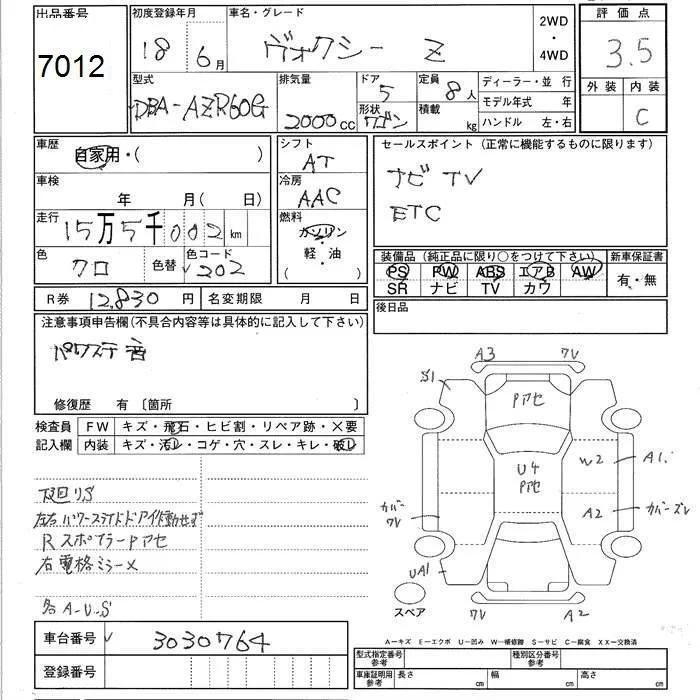 出品番号
7012
初度登録年月
18 6月
車名・グレード
ヴォクシー Z
2WD
・
4WD
評価点
3.5
外装 内装
C
型式
DBA-AZR60G
排気量
2000cc
ドア
5
形状
ワゴン
定員
8人
積載
kg
ディーラー・並行
モデル年式 年
ハンドル 左・右
車歴
自家用・( )
シフト
AT
車検
年 月( 日)
冷房
AAC
走行
15万5千002km
燃料
ガソリン
・
軽・油
( )
色
クロ
色替
色コード
202
セールスポイント (正常に機能するものに限ります)
ナビ TV
ETC
装備品 (純正品に限り○をつけて下さい)
PS PW ABS エアB AW
SR ナビ TV カワ
新車保証書
有・無
R券 12,830円
名変期限 月 日
後日品
注意事項申告欄(不具合内容等は具体的に記入して下さい)
パワステ音
修復歴 有 〔箇所 〕
検査員
記入欄
FW キズ・飛石・ヒビ割・リペア跡・×要
内装 キズ・汚レ・コゲ・穴・スレ・キレ・破レ
下廻りS
左右パワースライドドア作動せず
RスポイラーPアセ
右電格ミラー×
各A-U-S
A3 7V
S1
Pアセ
U4
Pアセ
W2 A1
A2 カバーズレ
カバー
7V
UA1
スペア
7V A2
A-キズ E-エクボ U-凹み W-補修跡 S-サビ C-腐食 XX-交換済
車台番号 3030764
登録番号
型式指定番号
参考
種別区分番号
参考
車庫証明用
参考
長さ cm 幅 cm 高さ cm